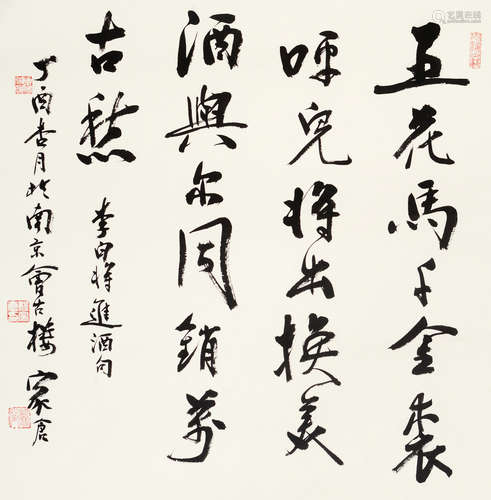 五花馬千金裘
呼兒將出換美
酒與尔同銷萬
古愁
李白將進酒句
丁酉杏月於南京會古樓 家唐